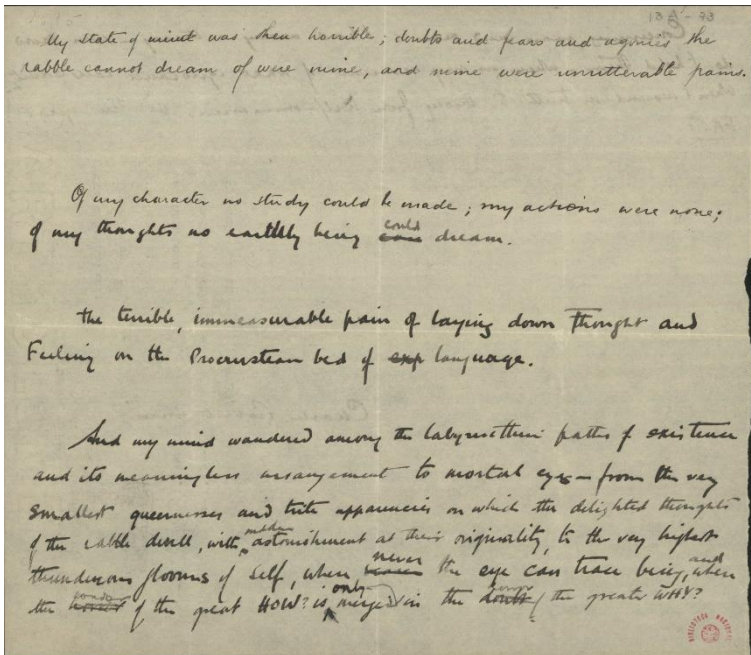 My state of mind was then horrible; doubts and fears and agonies the
rabble cannot dream of were mine, and mine were unutterable pains.
Of my character no study could be made; my actions were none;
of my thoughts no earthly being could dream.
the terrible, immeasurable pain of laying down Thought and
Feeling on the Procrustean bed of exp language.
And my mind wandered among the labyrinthine paths of existence
and its meaningless arrangement to mortal eyes – from the very
smallest queernesses and trite apparencies on which the delighted thoughts
of the rabble dwell, with sudden astonishment at their originality, to the very highest
thunderous glooms of Self, where never the eye can trace being, and when
the horror of the great HOW? is only merged in the doubt of the greater WHY?
BIBLIOTECA NACIONAL